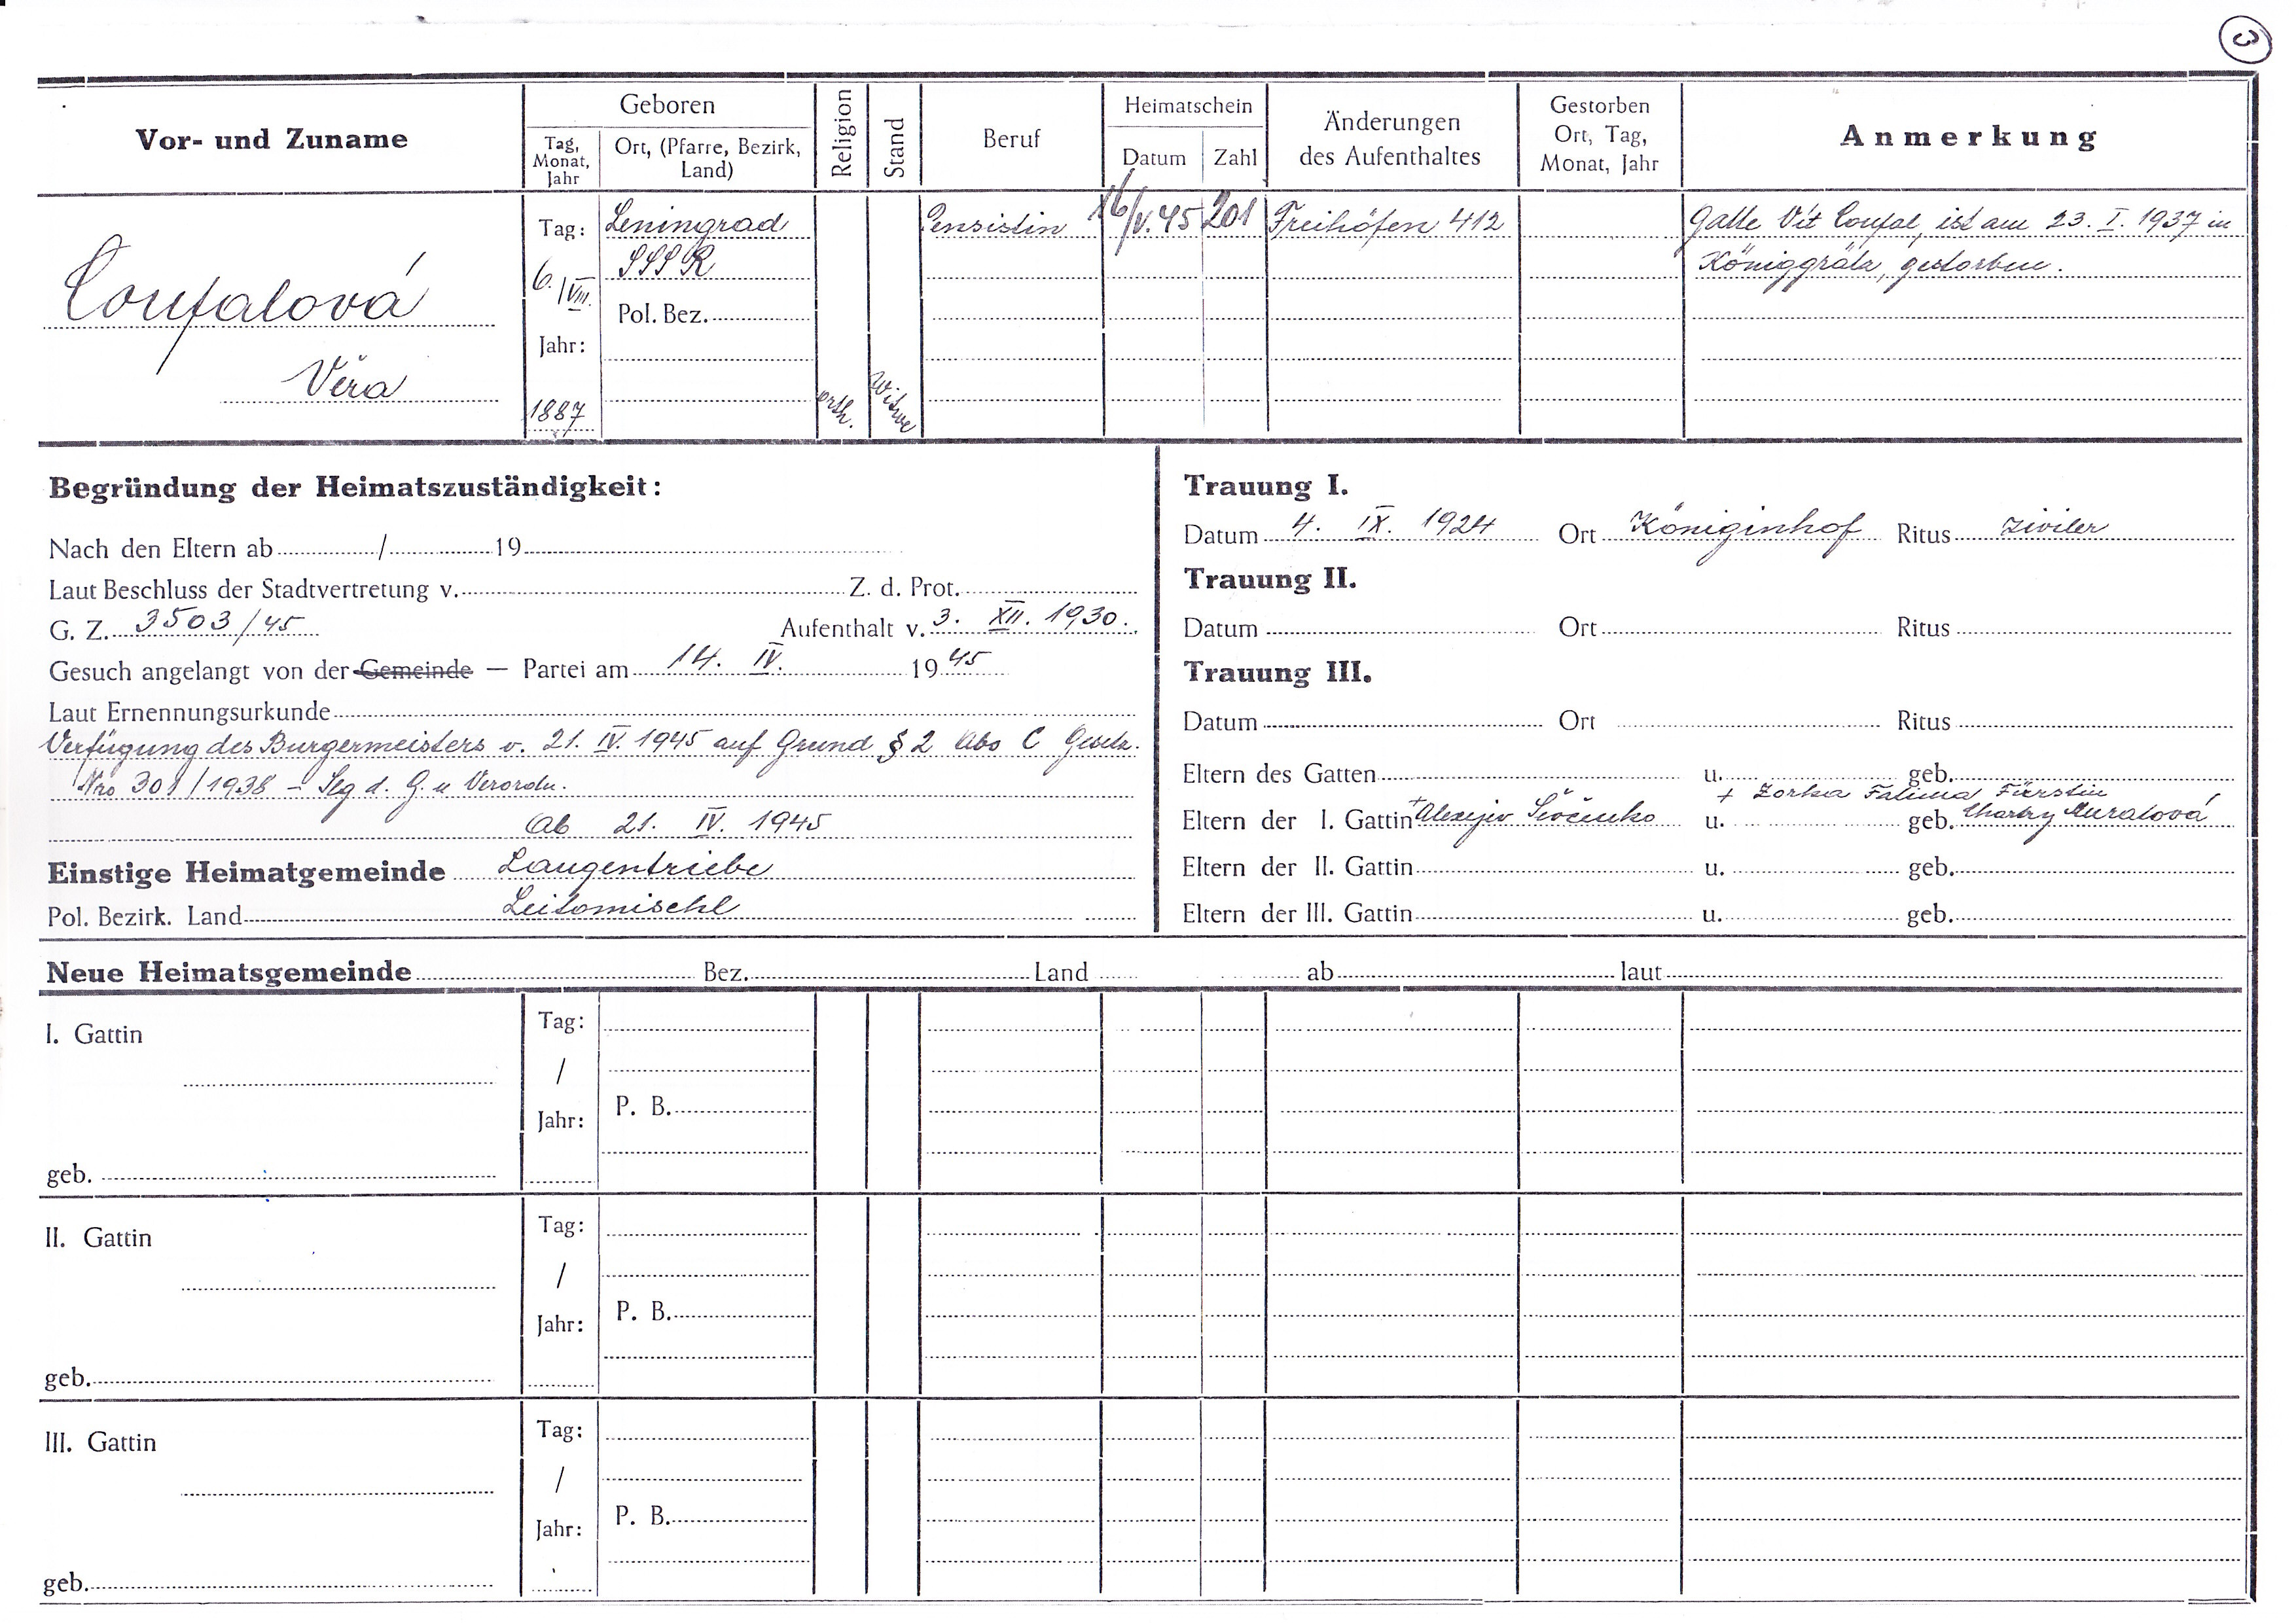 Vor- und Zuname
Geboren
Tag, Monat, Jahr
Ort, (Pfarre, Bezirk, Land)
Religion
Stand
Beruf
Heimatschein
Datum
Zahl
Änderungen des Aufenthaltes
Gestorben Ort, Tag, Monat, Jahr
Anmerkung
Coufalová
Věra
Tag:
6./VIII.
Jahr:
1887
Leningrad
SSSR
Pol. Bez.
orth.
Witwe
Pensistin
16/V.45
201
Freihöfen 412
Gatte Vít Coufal, ist am 23. I. 1937 in
Königgrätz, gestorben.
Begründung der Heimatszuständigkeit:
Nach den Eltern ab / 19
Laut Beschluss der Stadtvertretung v. Z. d. Prot.
G. Z. 3503/45 Aufenthalt v. 3. XII. 1930.
Gesuch angelangt von der Gemeinde — Partei am 14. IV. 1945
Laut Ernennungsurkunde
Verfügung des Bürgermeisters v. 21. IV. 1945 auf Grund § 2 Abs C Gesetz.
Nro 301/1938 – Slg d. G. u Verordn.
Ab 21. IV. 1945
Einstige Heimatgemeinde Langentriebe
Pol. Bezirk. Land Leitomischl
Trauung I.
Datum 4. IX. 1924 Ort Königinhof Ritus ziviler
Trauung II.
Datum Ort Ritus
Trauung III.
Datum Ort Ritus
Eltern des Gatten u. geb.
+ Zorka Fatima Fürstin
Eltern der I. Gattin + Alexejiv u. geb. Muratová
Eltern der II. Gattin u. geb.
Eltern der III. Gattin u. geb.
Neue Heimatsgemeinde Bez. Land ab laut
I. Gattin
Tag:
/
Jahr:
P. B.
geb.
II. Gattin
Tag:
/
Jahr:
P. B.
geb.
III. Gattin
Tag:
/
Jahr:
P. B.
geb.